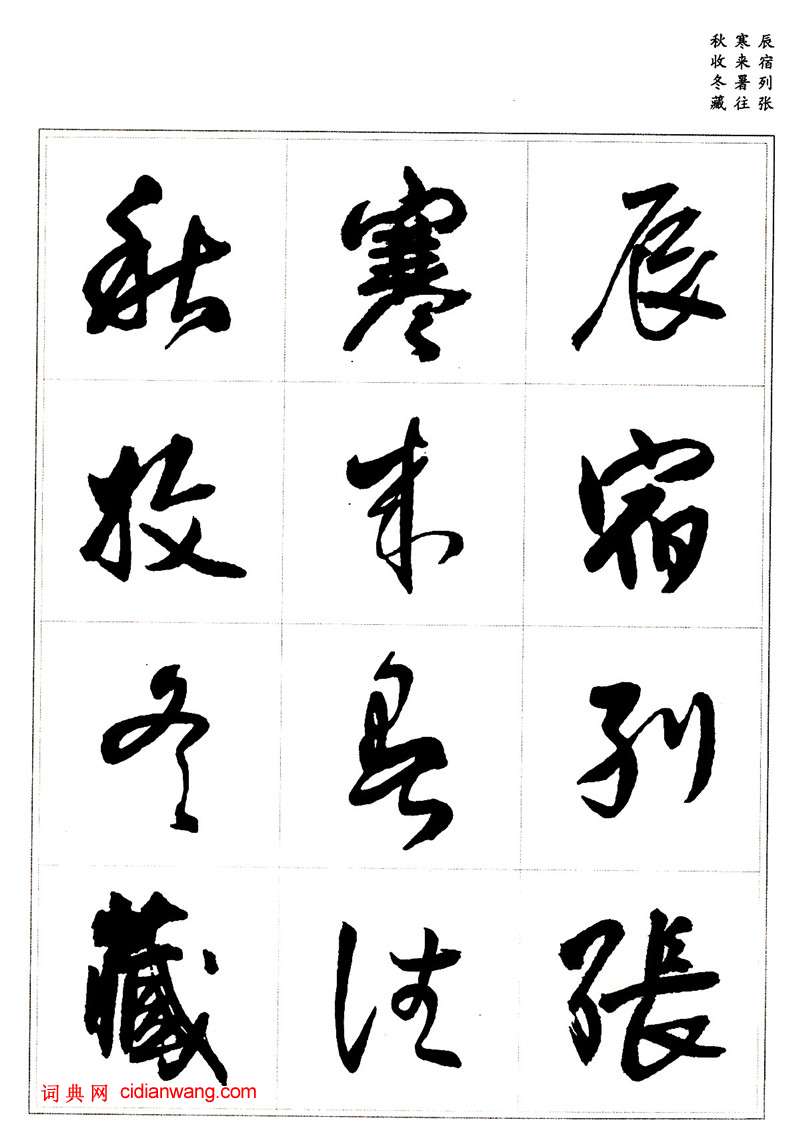 辰宿列张
寒来暑往
秋收冬藏
辰宿列張
寒来暑往
秋收冬藏
词典网 cidianwang.com